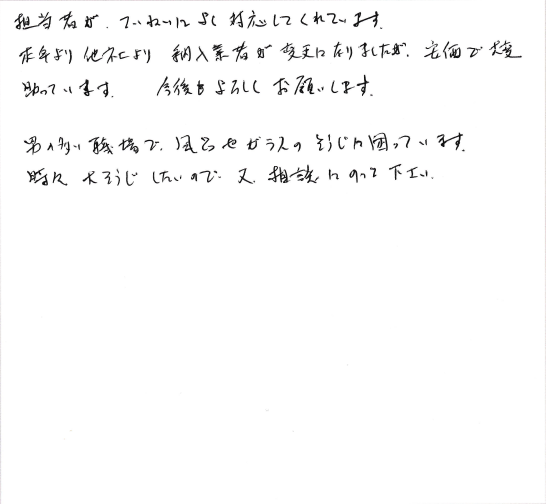 担当者が、ていねいによく対応してくれています。
本年より他社により納入業者が変更になりましたが、安価で大変
助っています。 今後もよろしくお願いします。
男の多い職場で、風呂やガラスのそうじに困っています。
時々大そうじしたいので、又、相談にのって下さい。